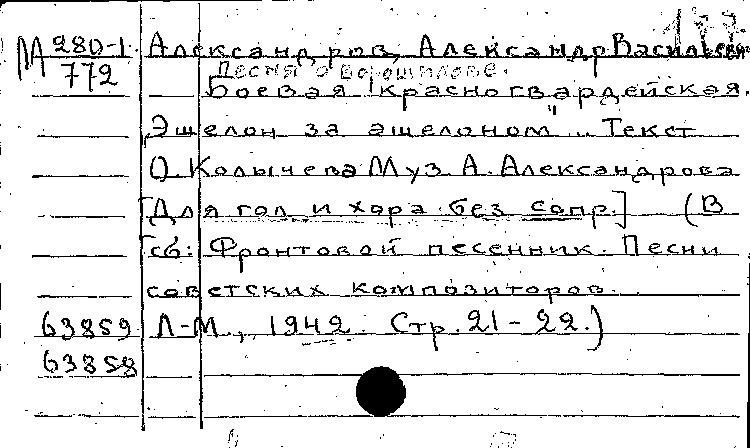 177
М 280-1 Александров, Александр Васильевич
772 Песня о Ворошилове.
Боевая красногвардейская.
„Эшелон за эшелоном". Текст
О. Колычева Муз. А. Александрова
[Для гол. и хора без сопр.] (В
сб: Фронтовой песенник. Песни
советских композиторов.
63859 Л-М., 1942. Стр. 21-22.)
63858